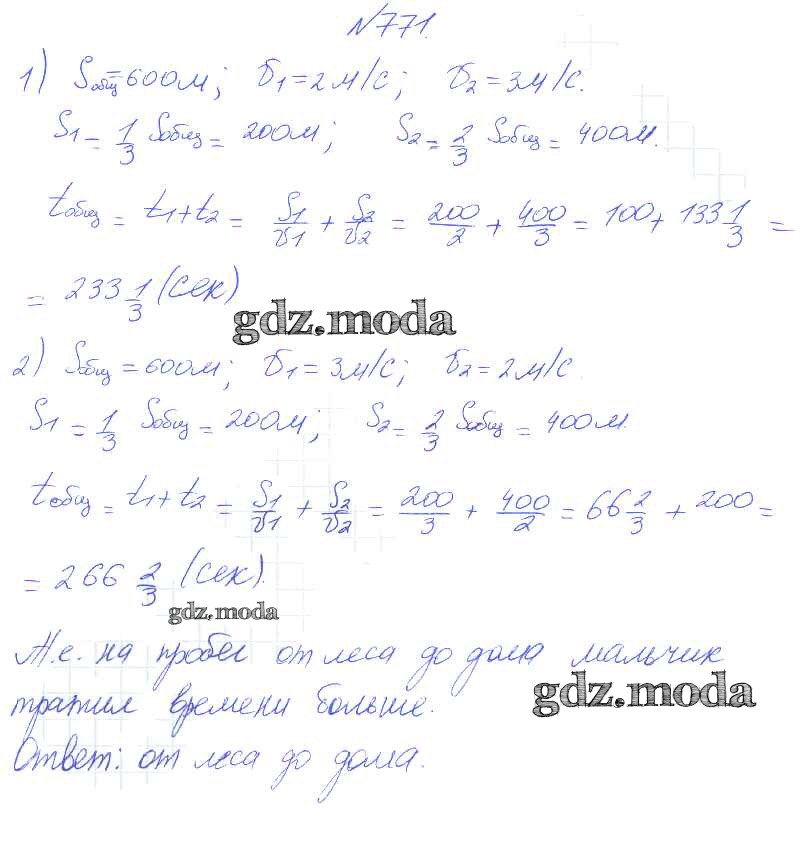 №771.
1) Sобщ=600м; V1=2м/с; V2=3м/с.
S1=1/3 Sобщ=200м; S2=2/3 Sобщ=400м.
tобщ=t1+t2=S1/V1+S2/V2=200/2+400/3=100+133 1/3=
=233 1/3 (сек)
gdz.moda
2) Sобщ=600м; V1=3м/с; V2=2м/с.
S1=1/3 Sобщ=200м; S2=2/3 Sобщ=400м.
tобщ=t1+t2=S1/V1+S2/V2=200/3+400/2=66 2/3+200=
=266 2/3 (сек).
gdz.moda
Т.е. на пробег от леса до дома мальчик
тратил времени больше.
gdz.moda
Ответ: от леса до дома.